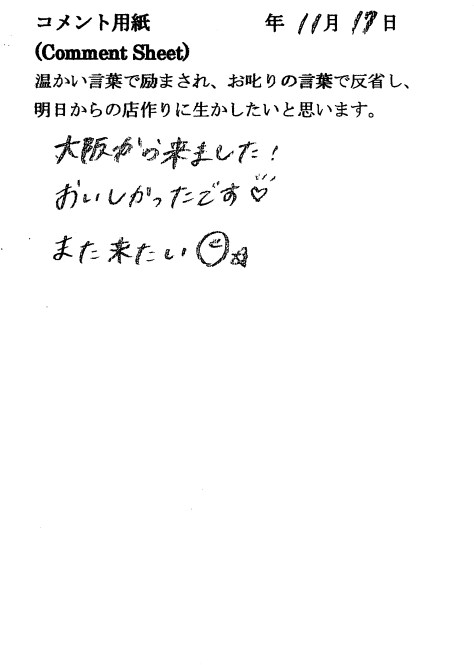 コメント用紙 年 11月 17日
(Comment Sheet)
温かい言葉で励まされ、お叱りの言葉で反省し、
明日からの店作りに生かしたいと思います。
大阪から来ました!
おいしかったです♡
また来たい